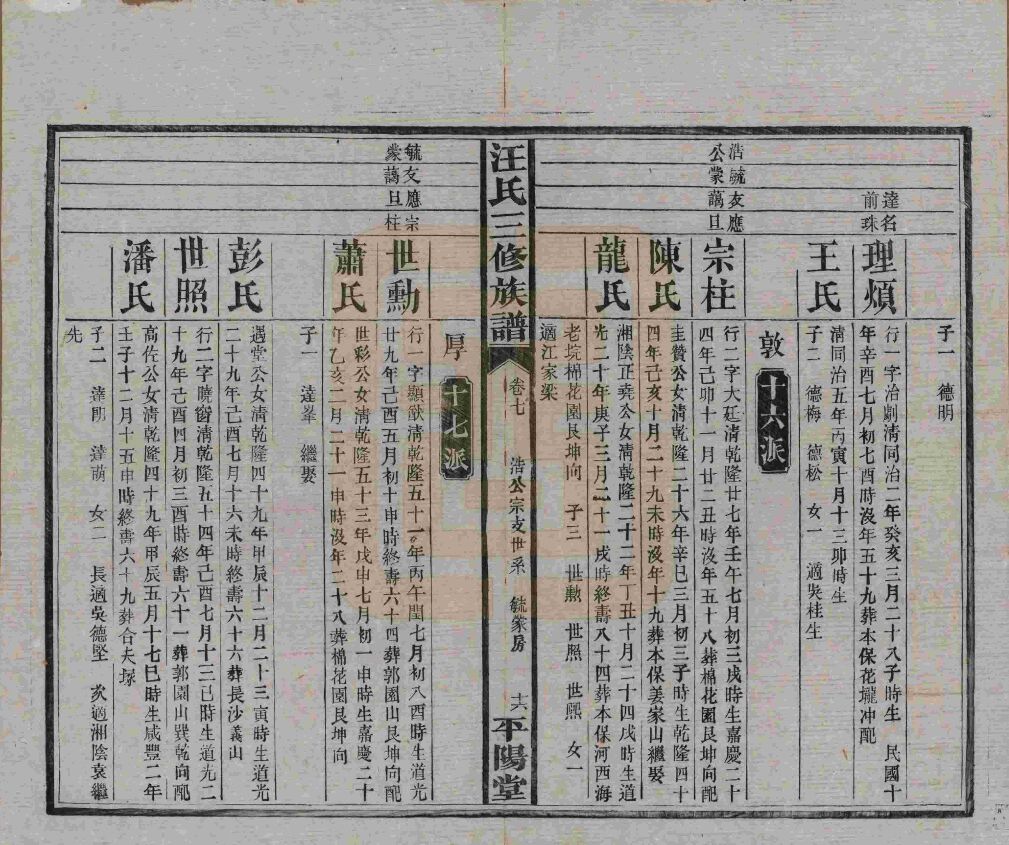 子一 德明
達名
前珠
理煩
行一字治劇清同治二年癸亥三月二十八子時生 民國十
年辛酉七月初七酉時沒年五十九葬本保花壠冲配
王氏
清同治五年丙寅十月十三卯時生
子二 德梅 德松 女一 適吳桂生
敦 十六派
浩毓友應
公蒙藹旦
宗柱
行二字大廷清乾隆廿七年壬午七月初三戌時生嘉慶二十
四年己卯十一月廿二丑時沒年五十八葬棉花園艮坤向配
陳氏
圭贊公女清乾隆二十六年辛巳三月初三子時生乾隆四十
四年己亥十月二十九未時沒年十九葬本保姜家山繼娶
龍氏
湘陰正堯公女清乾隆二十二年丁丑十月二十四戌時生道
光二十年庚子三月二十一戌時終壽八十四葬本保河西海
老垸棉花園艮坤向 子三 世勲 世照 世熙 女一
適江家梁
汪氏三修族譜
卷七 浩公宗支世系 毓蒙房
十六
平陽堂
厚 十七派
毓友應宗
蒙藹旦柱
世勳
行一字顯猷清乾隆五十一年丙午閏七月初八酉時生道光
廿九年己酉五月初十申時終壽六十四葬郭園山艮坤向配
蕭氏
世彩公女清乾隆五十三年戊申七月初一申時生嘉慶二十
年乙亥二月二十一申時沒年二十八葬棉花園艮坤向
子一 達峯 繼娶
彭氏
遇堂公女清乾隆四十九年甲辰十二月二十三寅時生道光
二十九年己酉七月十六未時終壽六十六葬長沙義山
世照
行二字曉窗清乾隆五十四年己酉七月十三巳時生道光二
十九年己酉四月初三酉時終壽六十一葬郭園山巽乾向配
潘氏
高佐公女清乾隆四十九年甲辰五月十七巳時生咸豐二年
壬子十二月十五申時終壽六十九葬合夫塚
子二 達明 達萌 女二 長適吳德堅 次適湘陰袁繼
先